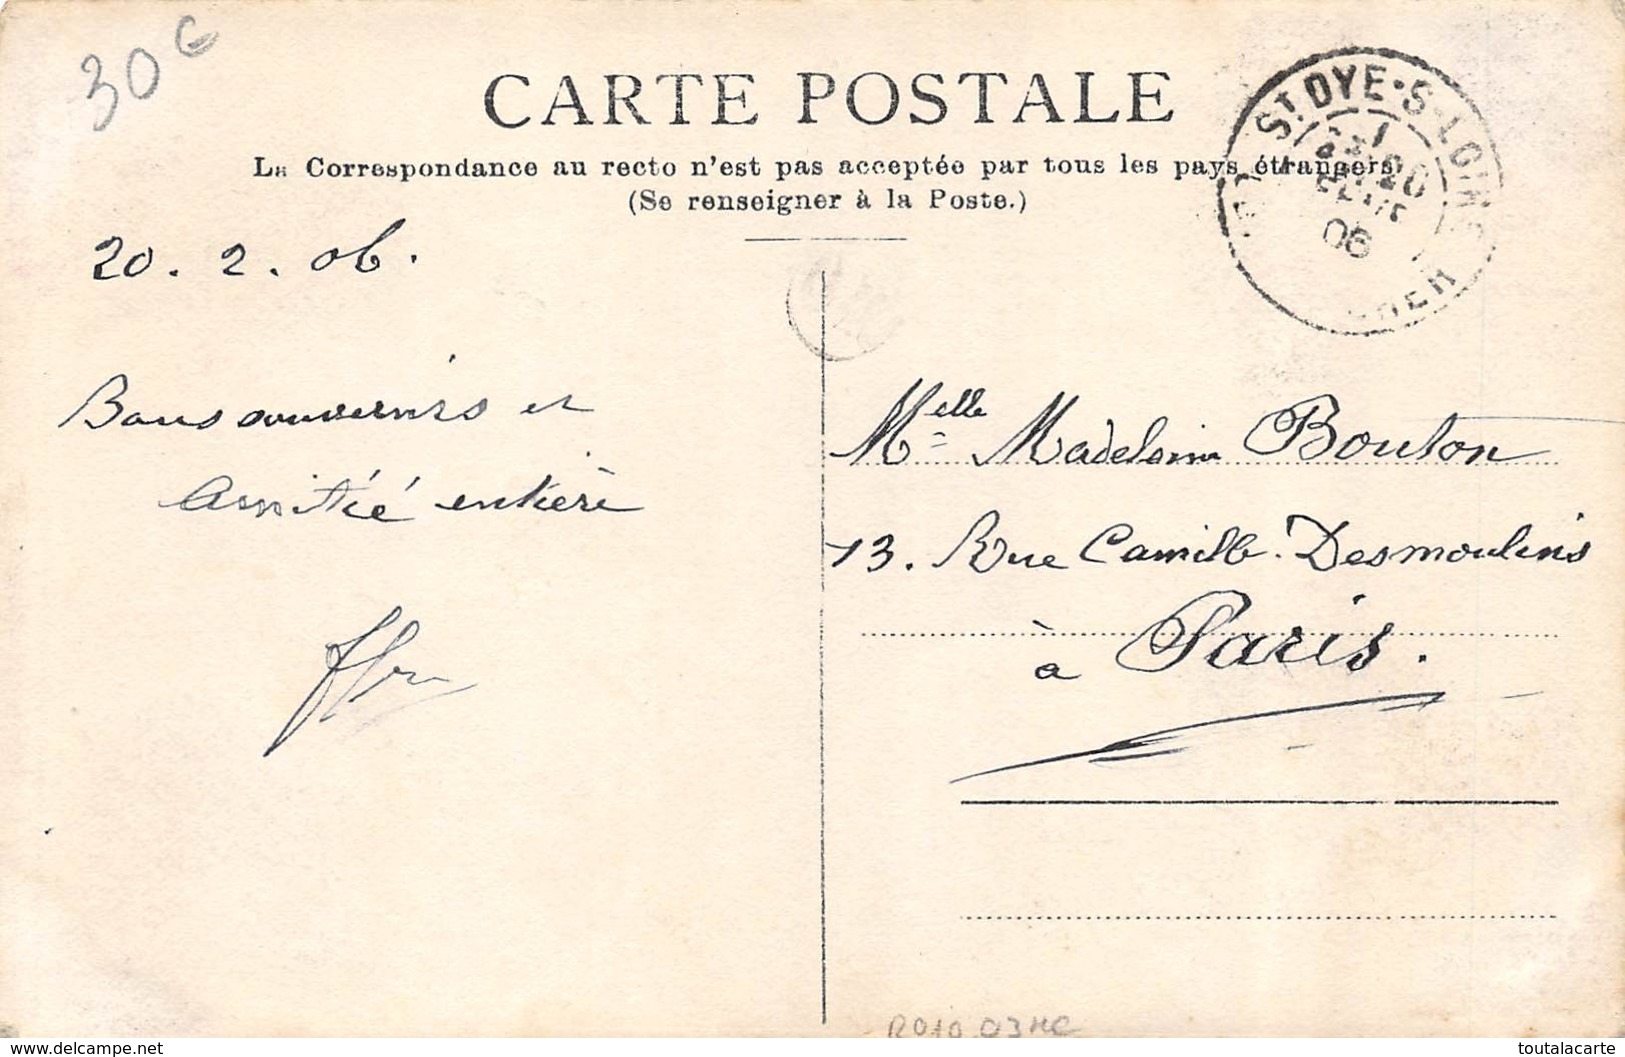 30 €
CARTE POSTALE
La Correspondance au recto n'est pas acceptée par tous les pays étrangers
(Se renseigner à la Poste.)
ST DYE-S-LOIRE
20
06
CHER
20. 2. 06.
Bons souvenirs et
Amitié entière
Melle Madeleine Bouton
13. Rue Camille-Desmoulins
à Paris.
R010.03 MC
toutalacarte